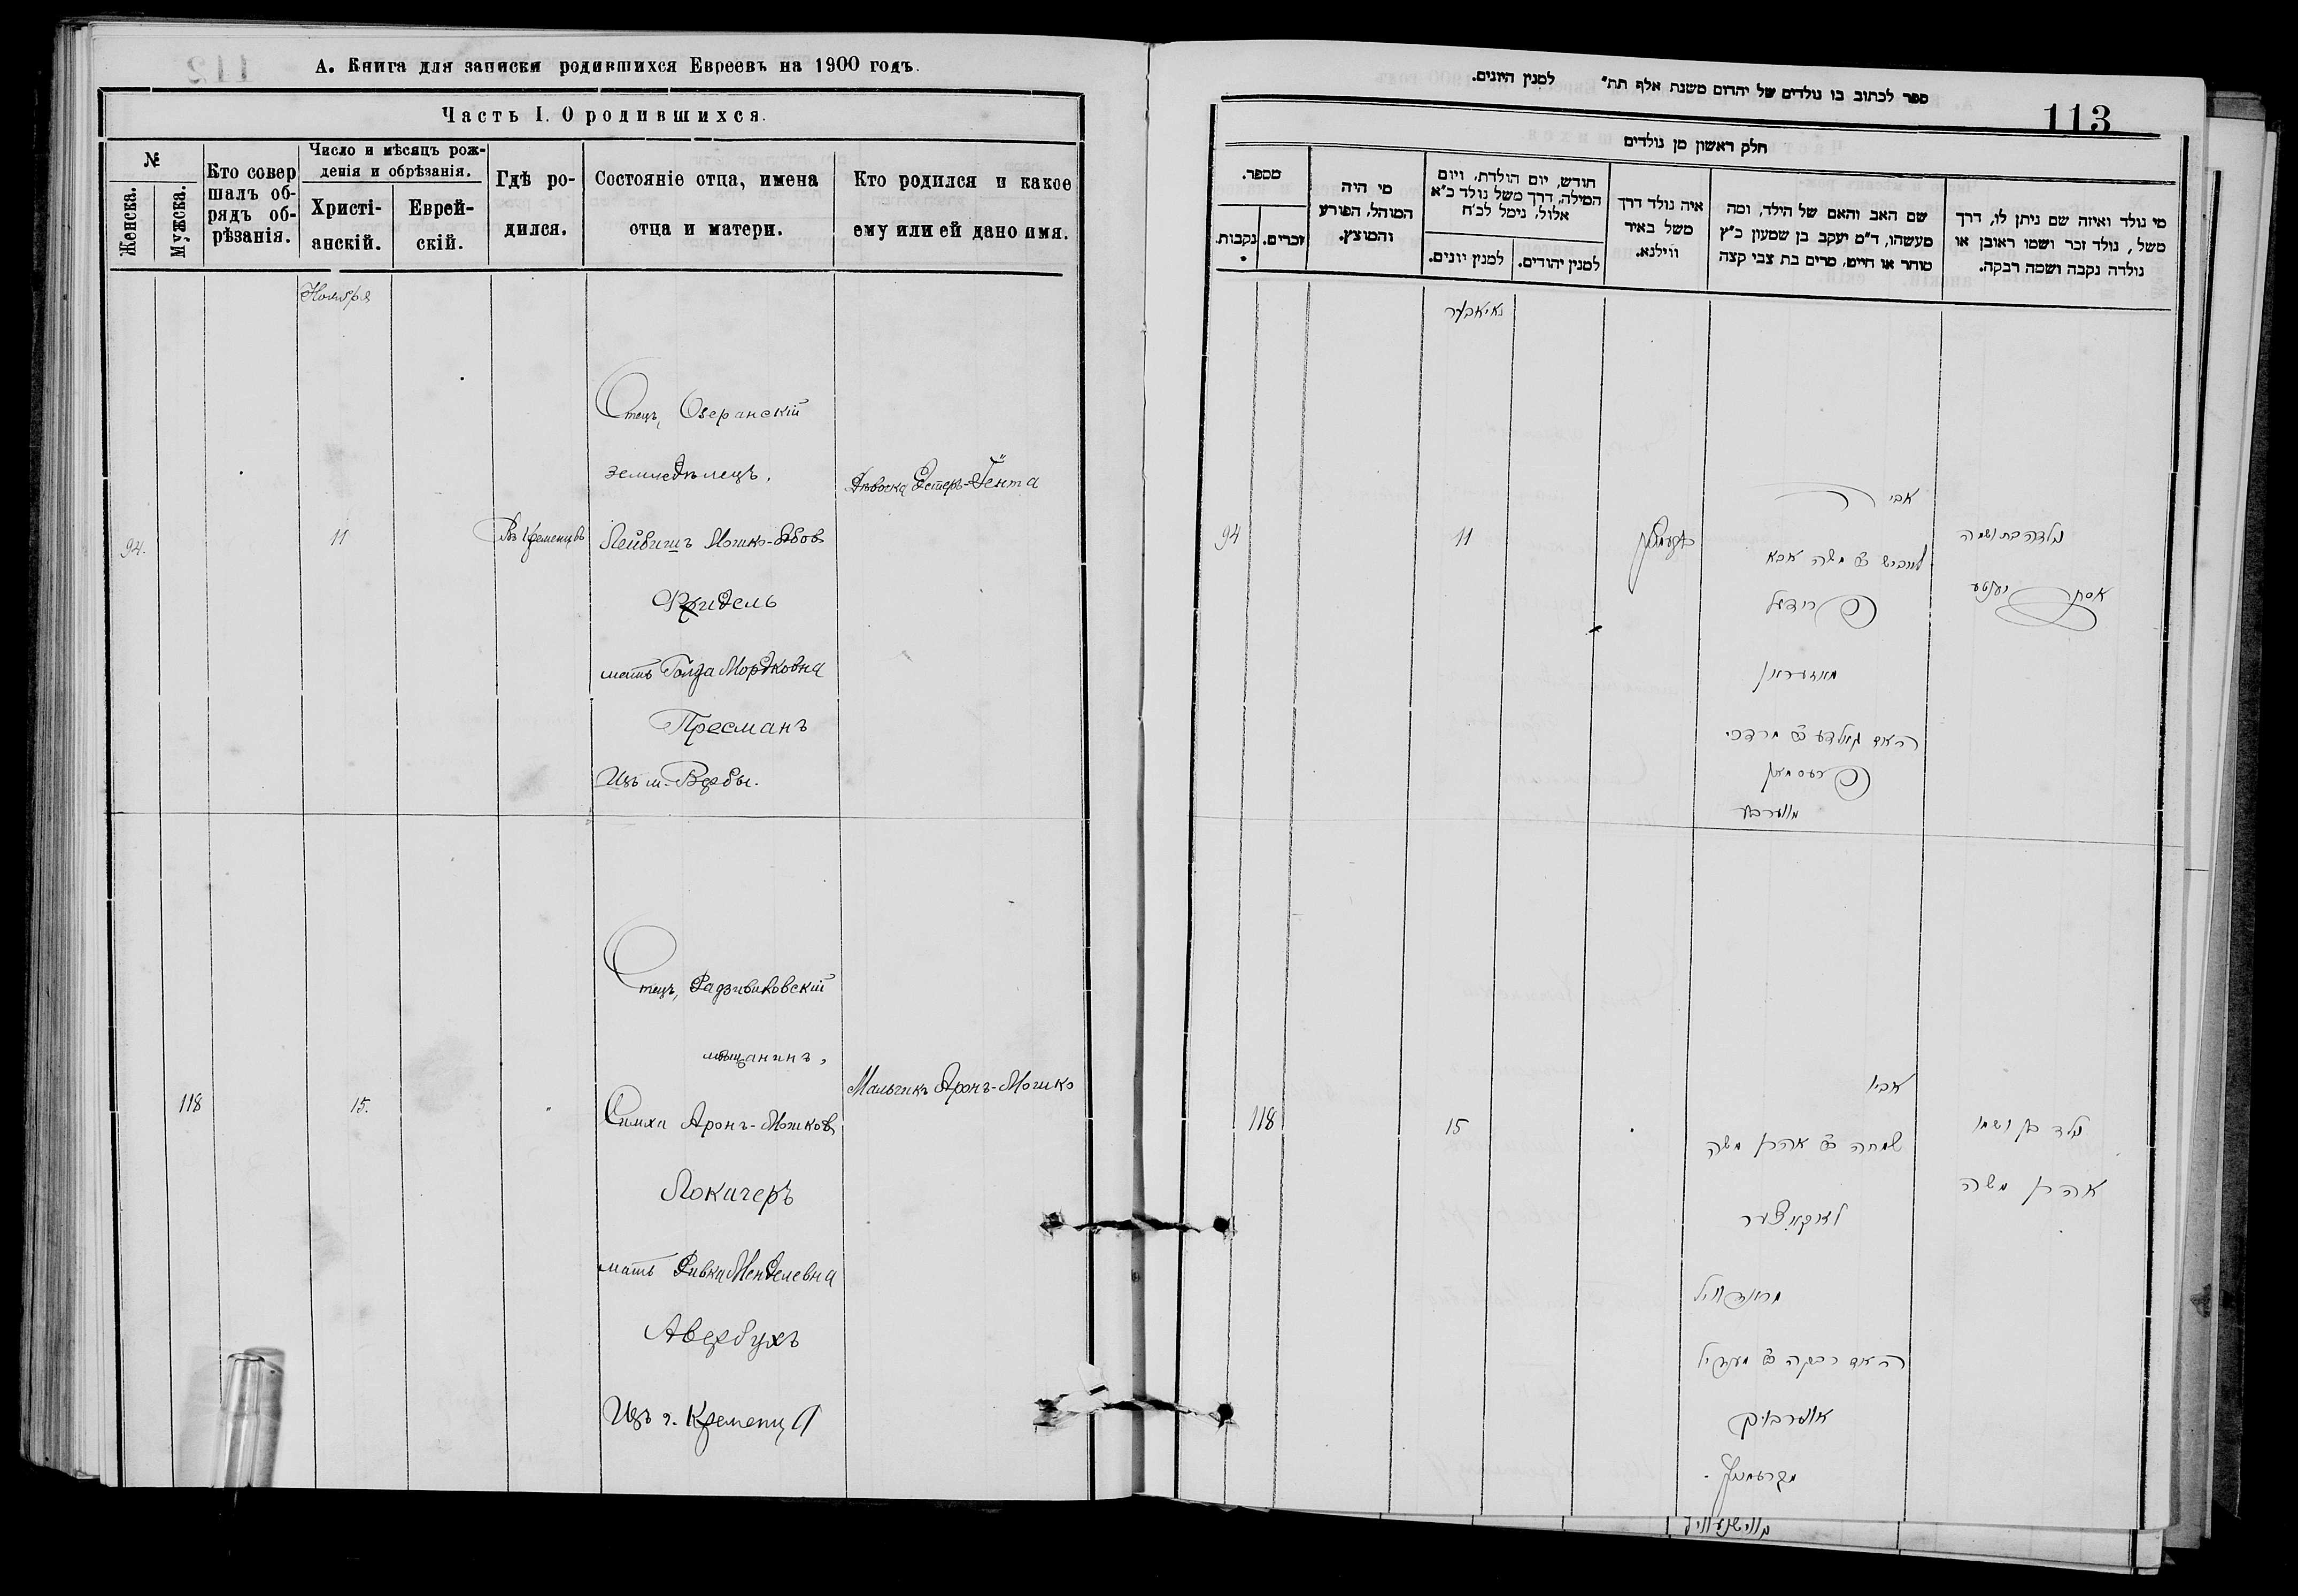 112
А. Книга для записки родившихся Евреевъ на 1900 годъ.
Часть I. О родившихся.
№
Женска.
Мужска.
Кто совер
шалъ об-
рядъ об-
рѣзанія.
Число и мѣсяцъ рож-
денія и обрѣзанія.
Христі-
анскій.
Еврей-
скій.
Гдѣ ро-
дился.
Состояніе отца, имена
отца и матери.
Кто родился и какое
ему или ей дано имя.
Ноября
94.
11
Въ Кременцѣ
Отецъ, Озеранскій
земледѣлецъ,
Лейбишъ Мошко-Абов
Фридель
мать Голда Мордковна
Пресманъ
Изъ м. Вербы.
Дѣвочка Эстеръ-Гента
118
15.
Отецъ, Радзивиловскій
мѣщанинъ,
Симха Аронъ-Мошков
Локачеръ
мать Ривка Менделевна
Авербухъ
Изъ г. Кременца
Мальчикъ Аронъ-Мошко
ספר לכתוב בו נולדים של יהדום משנת אלף תת״ למנין היונים.
113
חלק ראשון מן נולדים
מספר.
נקבות.
זכרים.
מי היה
המוהל, הפורע
והמוצץ.
חודש, יום הולדת, ויום
המילה, דרך משל נולד כ״א
אלול, נימל לכ״ח
למנין יונים.
למנין יהודים.
איה נולד דרך
משל באיר
ווילנא.
שם האב והאם של הילד, ומה
מעשהו, ד״מ יעקב בן שמעון כ״ץ
סוחר או חייט, מרים בת צבי קצה
מי נולד ואיזה שם ניתן לו, דרך
משל, נולד זכר ושמו ראובן או
נולדה נקבה ושמה רבקה.
נאיאבער
94
11
אבי
לייביש ב״ר משה אבא
פרידעל
האם גאלדע ב״ר מרדכי
פרעסמאן
מווערבע
נולדה בת ושמה
אסתר יענטע
118
15
אביו
שמחה ב״ר אהרן משה
לאקאיטשער
האם רבקה ב״ר מענדיל
אווערבוך
מקרעמניץ
נולד בן ושמו
אהרן משה
מווישנעוויץ